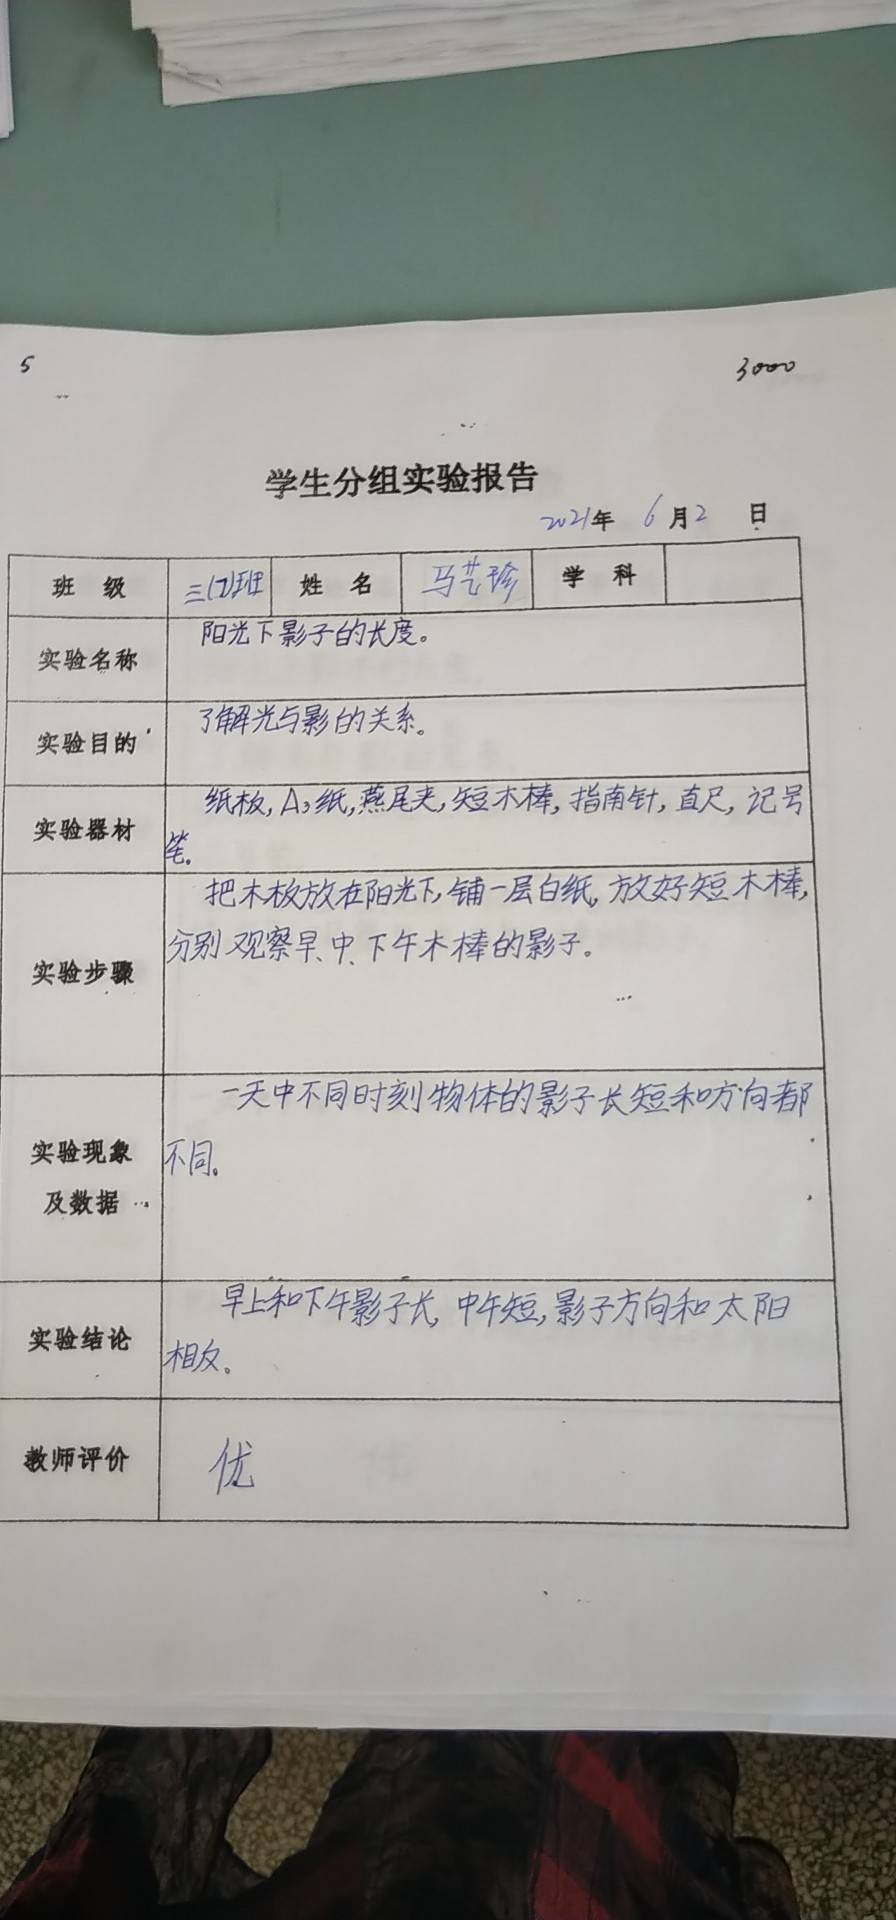 5 3000
学生分组实验报告
2021年 6月2 日
班 级 三(2)班 姓 名 马艺珍 学 科
实验名称 阳光下影子的长度。
实验目的 了解光与影的关系。
实验器材 纸板,A3纸,燕尾夹,短木棒,指南针,直尺,记号
笔。
实验步骤 把木板放在阳光下,铺一层白纸,放好短木棒,
分别观察早、中、下午木棒的影子。
实验现象
及数据 一天中不同时刻物体的影子长短和方向都
不同。
实验结论 早上和下午影子长,中午短,影子方向和太阳
相反。
教师评价 优